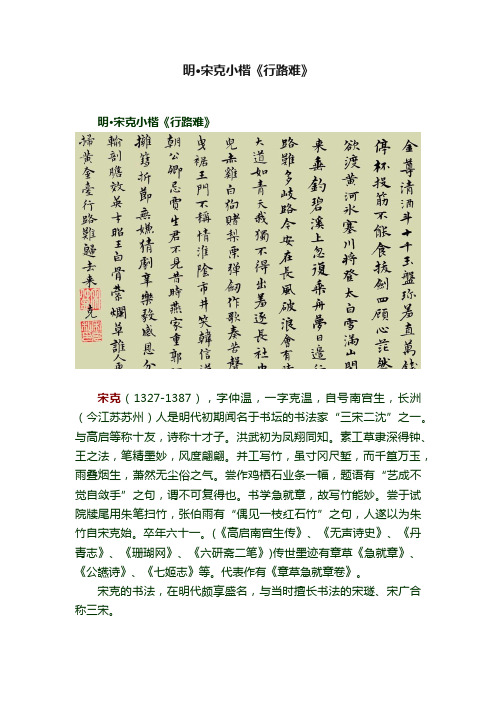 明•宋克小楷《行路难》
明•宋克小楷《行路难》
金尊清酒斗十千玉盤珍羞直萬錢
停杯投筯不能食拔劍四顧心茫然
欲渡黃河冰塞川將登太白雪滿山閑
來垂釣碧溪上忽復乘舟夢日邊行
路難多岐路今安在長風破浪會有
大道如青天我獨不得出羞逐長社中
兒赤雞白狗賭梨栗彈劍作歌奏苦聲
曳裾王門不稱情淮陰市井笑韓信
朝公卿忌賈生君不見昔時燕家重郭
擁篲折節無嫌猜劇辛樂毅感恩分
輸剖膽效英才昭王白骨縈爛草誰人
掃黃金臺行路難歸去來 克
宋克（1327-1387），字仲温，一字克温，自号南宫生，长洲
（今江苏苏州）人是明代初期闻名于书坛的书法家“三宋二沈”之一。
与高启等称十友，诗称十才子。洪武初为凤翔同知。素工草隶深得钟、
王之法，笔精墨妙，风度翩翩。并工写竹，虽寸冈尺堑，而千篁万玉，
雨叠烟生，萧然无尘俗之气。尝作鸡栖石业条一幅，题语有“艺成不
觉自敛手”之句，谓不可复得也。书学急就章，故写竹能妙。尝于试
院牍尾用朱笔扫竹，张伯雨有“偶见一枝红石竹”之句，人遂以为朱
竹自宋克始。卒年六十一。(《高启南宫生传》、《无声诗史》、《丹
青志》、《珊瑚网》、《六研斋二笔》)传世墨迹有章草《急就章》、
《公讌诗》、《七姬志》等。代表作有《章草急就章卷》。
宋克的书法，在明代颇享盛名，与当时擅长书法的宋璲、宋广合
称三宋。